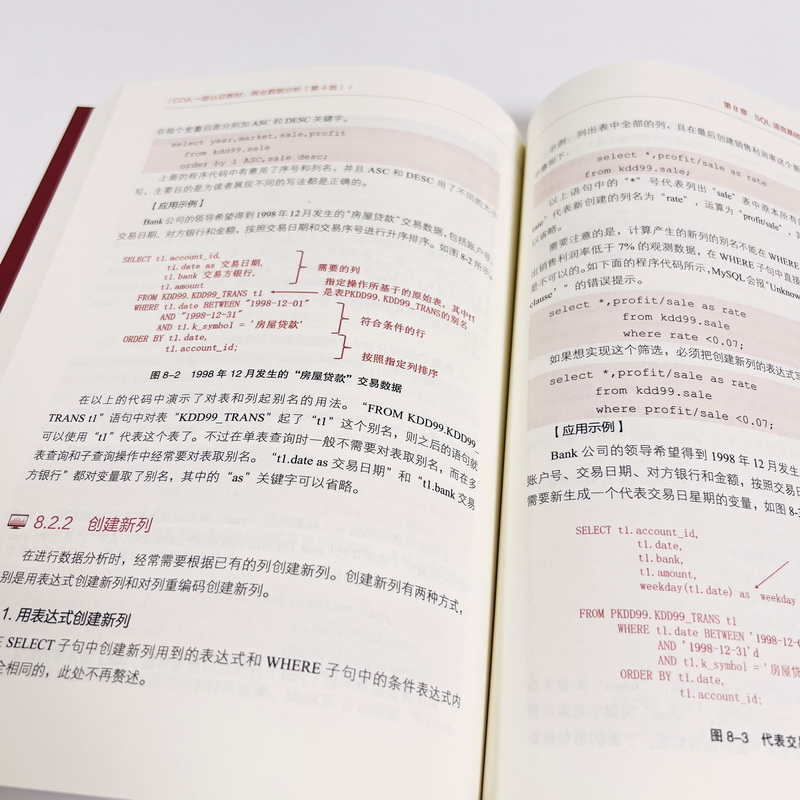 / CDA 一级认证教材：商业数据分析（第4版） /
在每个变量后面分别加 ASC 和 DESC 关键字。
select year,market,sale,profit
from kdd99.sale
order by 1 ASC,sale desc;
上面的程序代码中有意用了序号和列名，并且 ASC 和 DESC 用了不同的大小
写，主要目的是为读者展现不同的写法都是正确的。
【应用示例】
Bank 公司的领导希望得到 1998 年 12 月发生的“房屋贷款”交易数据，包括账户号、
交易日期、对方银行和金额，按照交易日期和交易序号进行升序排序。如图 8-2 所示。
SELECT t1.account_id,
t1.date as 交易日期,
t1.bank 交易方银行,
t1.amount
需要的列
FROM KDD99.KDD99_TRANS t1
指定操作所基于的原始表，其中t1
是表PKDD99.KDD99_TRANS的别名
WHERE t1.date BETWEEN "1998-12-01"
AND "1998-12-31"
AND t1.k_symbol = '房屋贷款'
符合条件的行
ORDER BY t1.date,
t1.account_id;
按照指定列排序
图 8-2 1998 年 12 月发生的“房屋贷款”交易数据
在以上的代码中演示了对表和列起别名的用法。“FROM KDD99.KDD99_
TRANS t1”语句中对表“KDD99_TRANS”起了“t1”这个别名，则之后的语句就
可以使用“t1”代表这个表了。不过在单表查询时一般不需要对表取别名，而在多
表查询和子查询操作中经常要对表取别名。“t1.date as 交易日期”和“t1.bank 交易
方银行”都对变量取了别名，其中的“as”关键字可以省略。
8.2.2 创建新列
在进行数据分析时，经常需要根据已有的列创建新列。创建新列有两种方式，
别是用表达式创建新列和对列重编码创建新列。
1. 用表达式创建新列
在 SELECT 子句中创建新列用到的表达式和 WHERE 子句中的条件表达式内
全相同的，此处不再赘述。
第 8 章 SQL 语言基础
示例：列出表中全部的列，且在最后创建销售利润率这个新
如下。
select *,profit/sale as rate
from kdd99.sale;
以上语句中的“*”号代表列出“sale”表中原本所有的
rate”代表新创建的列名为“rate”，运算为“profit/sale”，
以省略。
需要注意的是，计算产生的新列的别名不能在 WHERE
出销售利润率低于 7% 的观测数据，在 WHERE 子句中直接
是不可以的。如下面的程序代码所示，MySQL 会报“Unknown
clause'”的错误提示。
select *,profit/sale as rate
from kdd99.sale
where rate <0.07;
如果想实现这个筛选，必须把创建新列的表达式写
select *,profit/sale as rate
from kdd99.sale
where profit/sale <0.07;
【应用示例】
Bank 公司的领导希望得到 1998 年 12 月发生
账户号、交易日期、对方银行和金额，按照交易日
需要新生成一个代表交易日星期的变量，如图 8-3
SELECT t1.account_id,
t1.date,
t1.bank,
t1.amount,
weekday(t1.date) as weekday
FROM PKDD99.KDD99_TRANS t1
WHERE t1.date BETWEEN '1998-12-0
AND '1998-12-31'd
AND t1.k_symbol = '房屋贷
ORDER BY t1.date,
t1.account_id;
图 8-3 代表交易